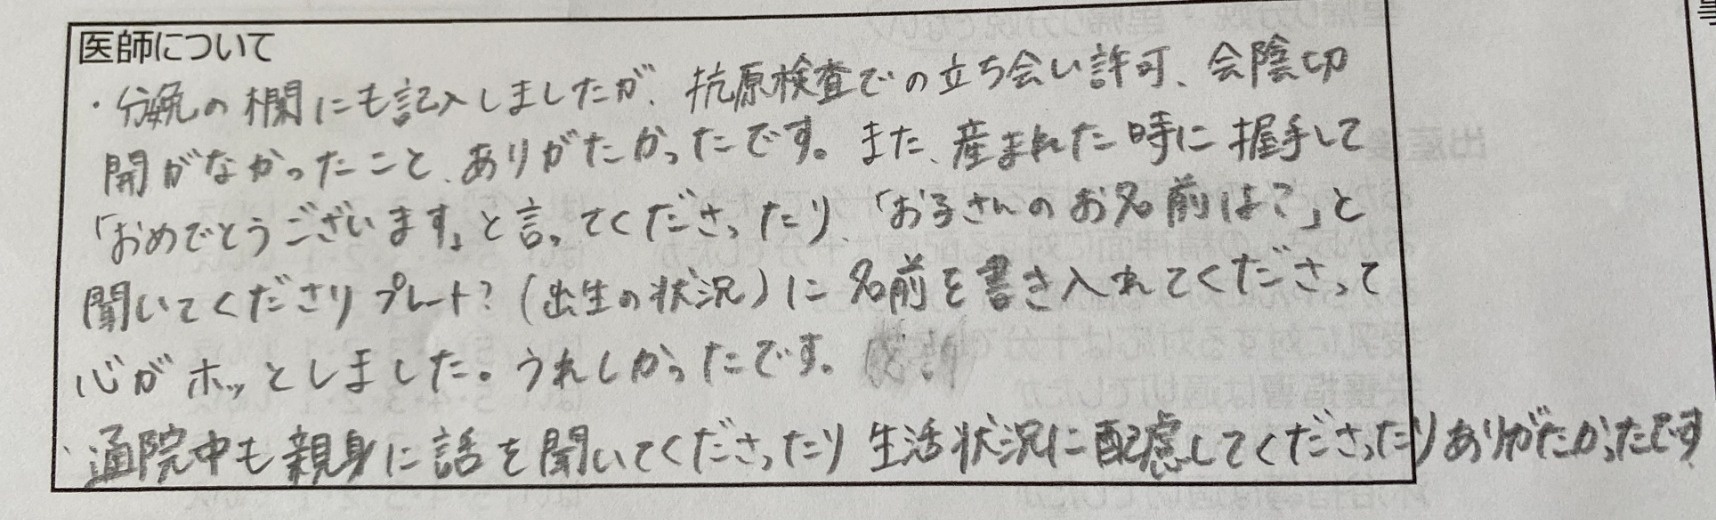 医師について
・分娩の欄にも記入しましたが、抗原検査での立ち会い許可、会陰切
開がなかったこと、ありがたかったです。また、産まれた時に握手して
「おめでとうございます」と言ってくださったり、「お子さんのお名前は?」と
聞いてくださりプレート?(出生の状況)に名前を書き入れてくださって
心がホッとしました。うれしかったです。
・通院中も親身に話を聞いてくださったり生活状況に配慮してくださったりありがたかったです